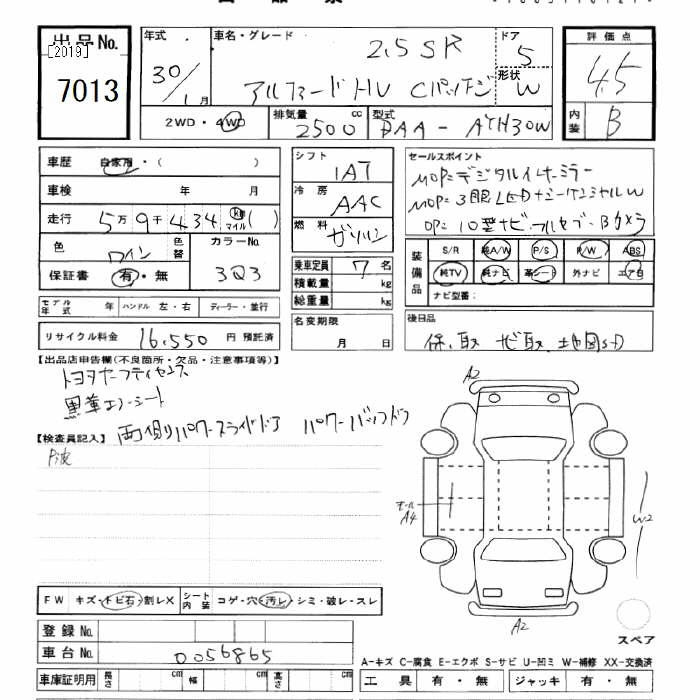 出品No.
[2019]
7013
年式
30/1月
車名・グレード
2.5 SR
アルファードHV Cパッケージ
ドア
5
形状
W
評価点
4.5
内装
B
2WD・4WD
排気量
2500 cc
型式
DAA-AYH30W
車歴 自家用・( )
車検 年 月
走行 5万9千434 km マイル ( )
色 ワイン 色替
カラーNo. 3Q3
保証書 有・無
モデル年式 年 ハンドル 左・右 ディーラー・並行
リサイクル料金 16,550 円 預託済
シフト
IAT
冷房
AAC
燃料
ガソリン
乗車定員 7 名
積載量 kg
総重量 kg
名変期限
月 日
セールスポイント
MOP=デジタルインナーミラー
MOP=3眼LED+シーケンシャルW
OP=10型ナビ・フルセグ・Bカメラ
装備品
S/R 純A/W P/S P/W ABS
純TV 純ナビ 革シート 外ナビ エアB
ナビ型番:
後日品
保、取 ナビ取 地図SD
【出品店申告欄(不良箇所・欠品・注意事項等)】
トヨタセーフティセンス
黒革エアーシート
両側パワースライドドア パワーバックドア
【検査員記入】
A2
モール
A4
W2
A2
スペア
FW キズ・トビ石・割レX シート内装 コゲ・穴・汚レ・シミ・破レ・スレ
登録No.
車台No. 0056865
車庫証明用 長さ cm 幅 cm 高さ cm
A-キズ C-腐食 E-エクボ S-サビ U-凹ミ W-補修 XX-交換済
工具 有・無 ジャッキ 有・無